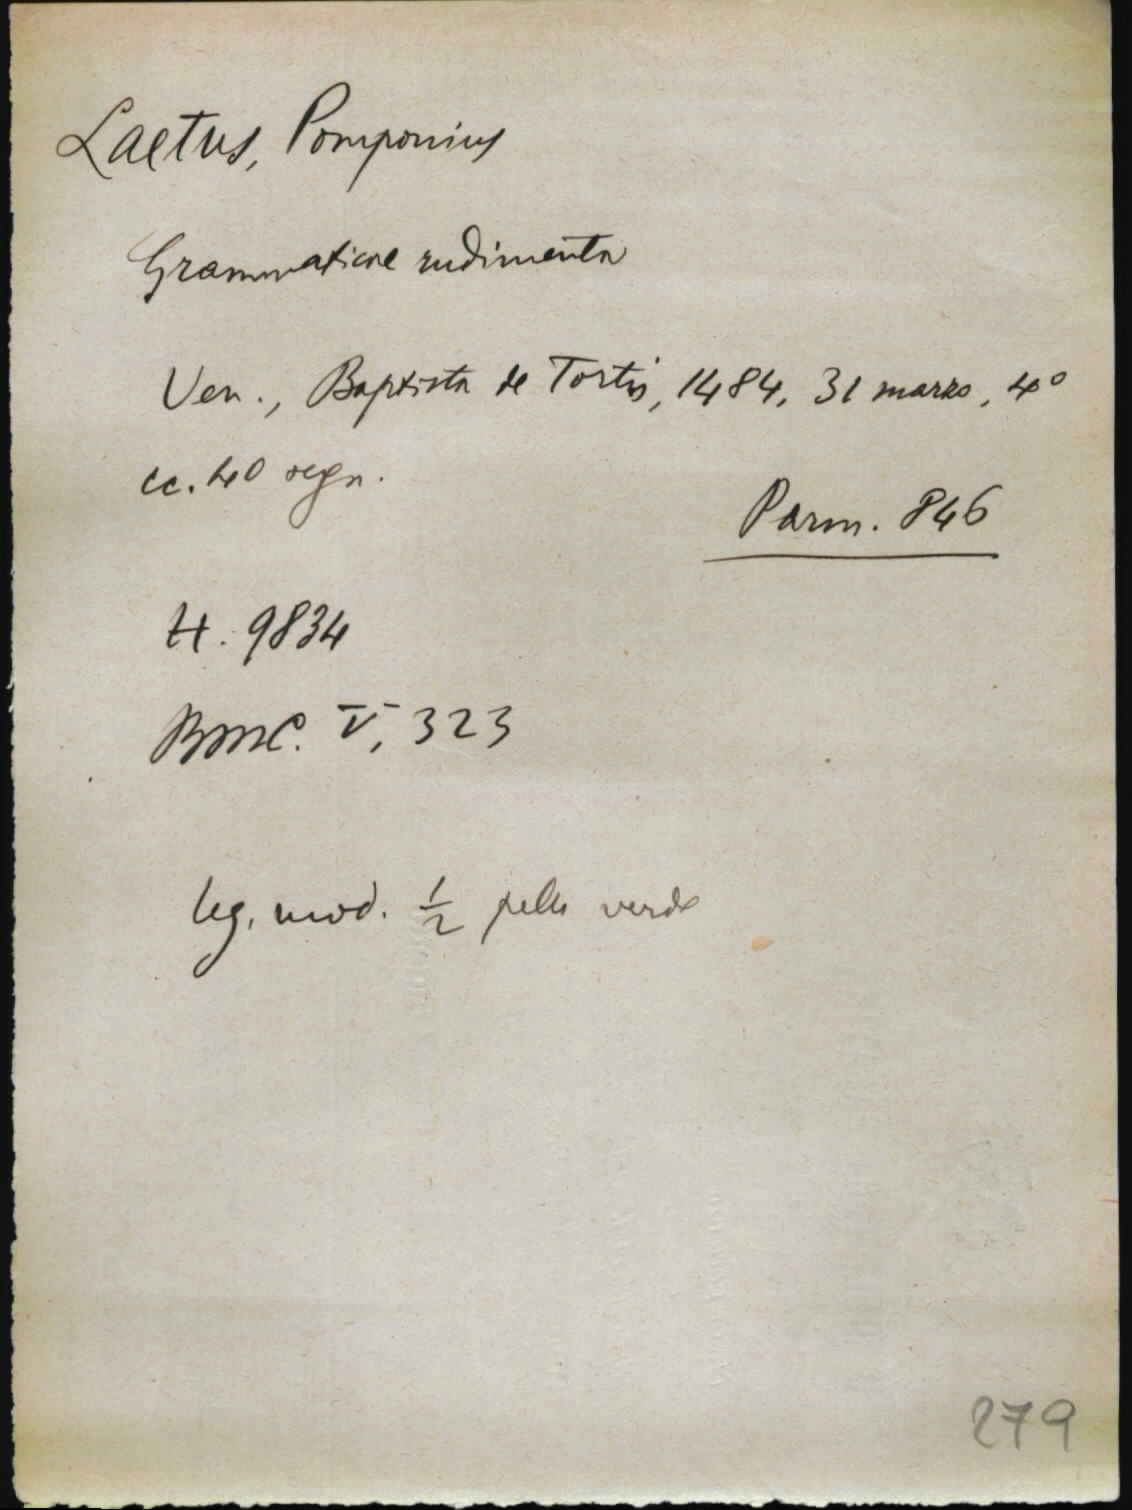 Laetus, Pomponius
Grammaticae rudimenta
Ven., Baptista de Tortis, 1484, 31 marzo, 4°
cc. 40 segn.
Parm. 846
H. 9834
BMC. V, 323
leg. mod. ½ pelle verde
279